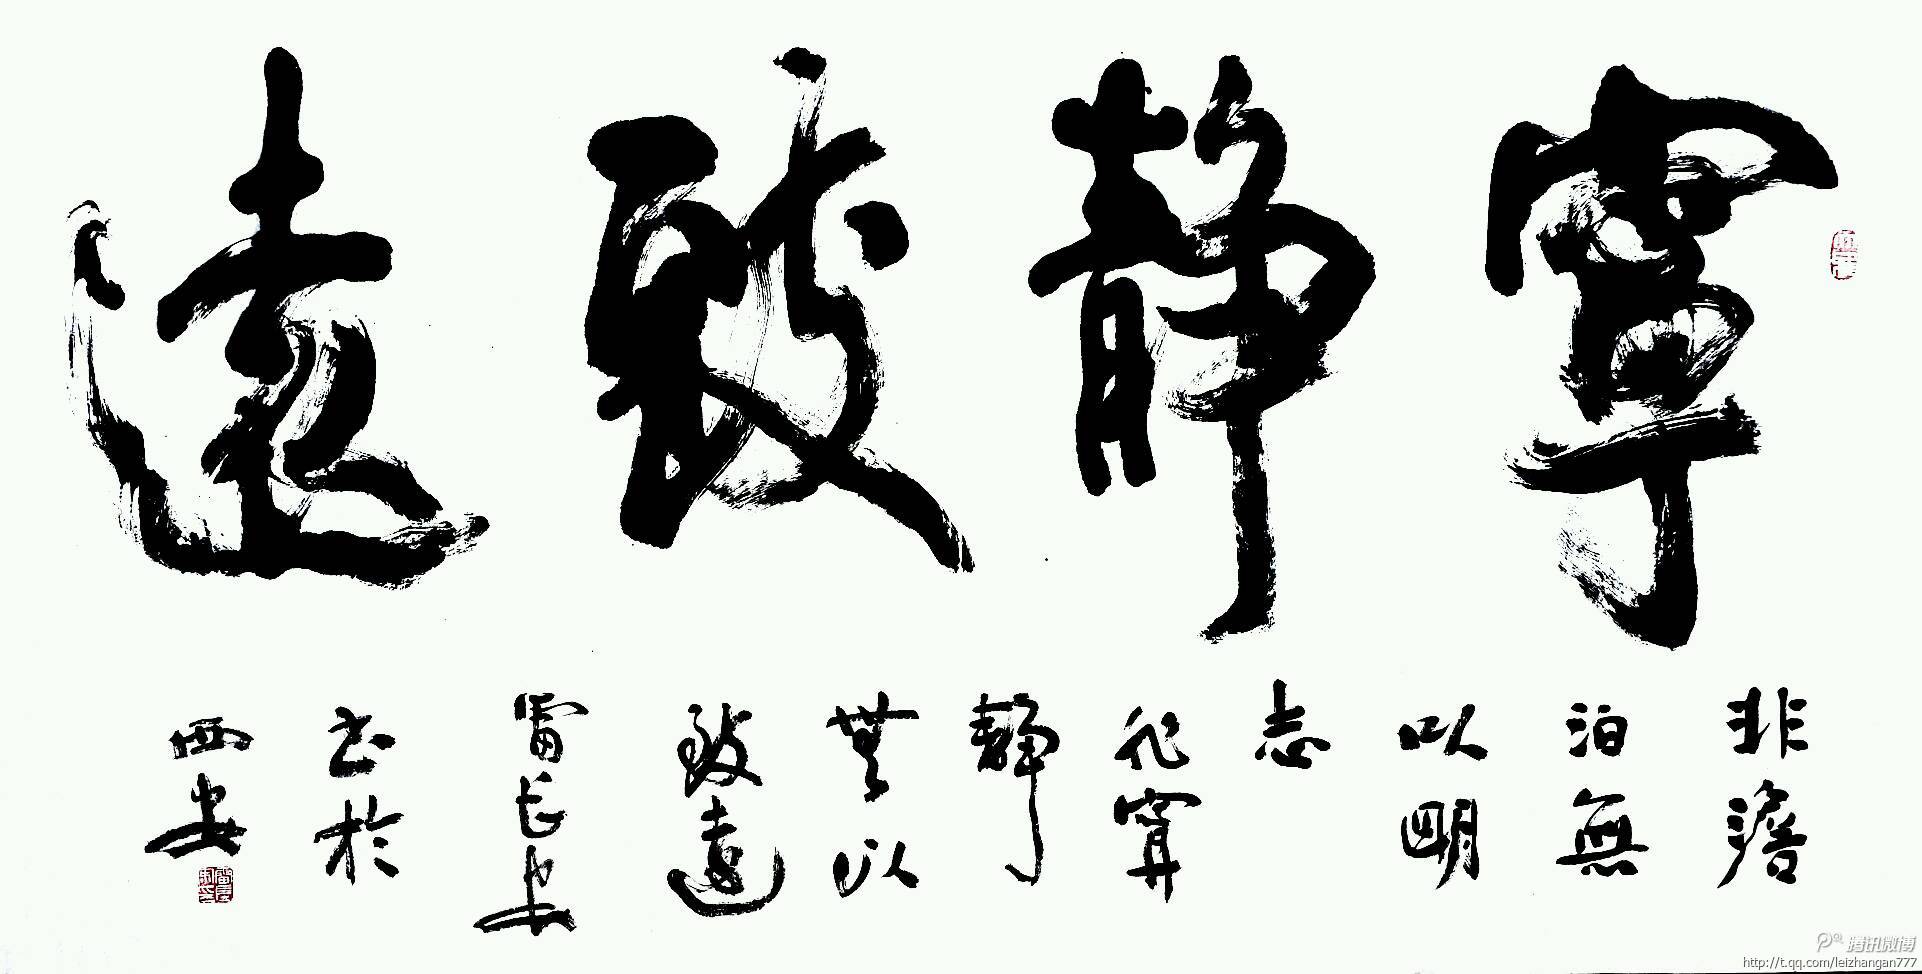 寧靜致遠
非澹
泊無
以明
志
非寧
靜
無以
致遠
雷長安
書於
西安
腾讯微博
http://t.qq.com/leizhangan777